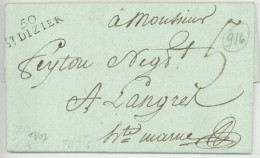 à Monsieur
50
ST DIZIER
916
Peyton Negt
A Langres
hte marne
1807